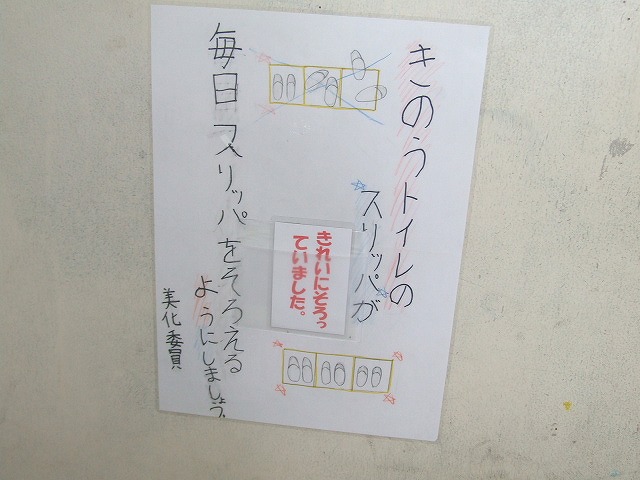 きのうトイレの
スリッパが
きれいにそろっ
ていました。
毎日スリッパをそろえる
ようにしましょう。
美化委員